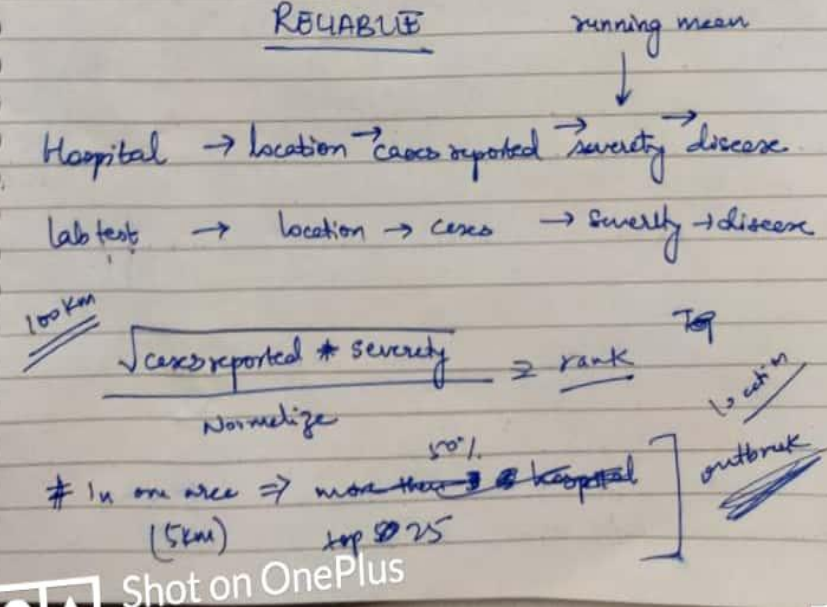 RELIABLE running mean
↓
Hospital → location → cases reported → severety → disease
Lab test → location → cases → severity → disease
100 km
√cases reported * severety = rank
Normalize
Top
location
outbreak
50%
# In one area ⇒ more than 3 hospital
(5km) top 25
Shot on OnePlus